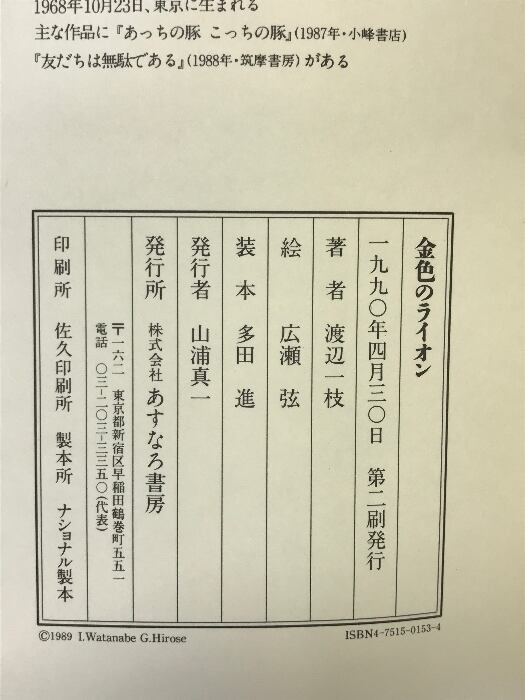 1968年10月23日、東京に生まれる
主な作品に『あっちの豚 こっちの豚』(1987年・小峰書店)
『友だちは無駄である』(1988年・筑摩書房)がある
金色のライオン
一九九〇年四月三〇日 第二刷発行
著者 渡辺一枝
絵 広瀬 弦
装本 多田 進
発行者 山浦真一
発行所 株式会社 あすなろ書房
〒一六二 東京都新宿区早稲田鶴巻町五五一
電話 〇三−二〇三−三三五〇(代表)
印刷所 佐久印刷所 製本所 ナショナル製本
©1989 I.Watanabe G.Hirose
ISBN4-7515-0153-4